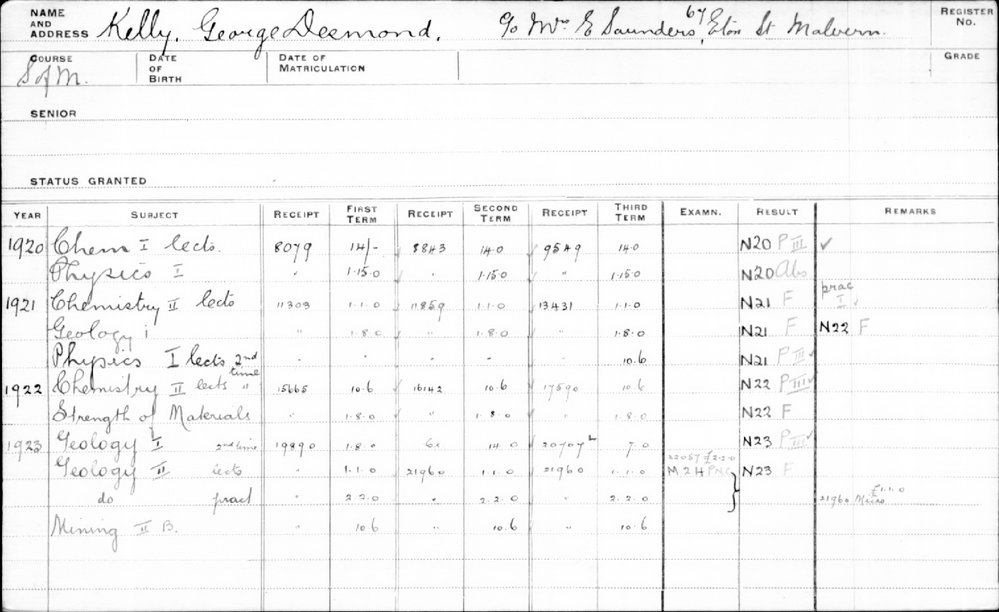 NAME AND ADDRESS Kelly, George Desmond. c/o Mrs E Saunders, 67 Eton St Malvern. REGISTER No.
COURSE S of M. DATE OF BIRTH DATE OF MATRICULATION GRADE
SENIOR
STATUS GRANTED
YEAR SUBJECT RECEIPT FIRST TERM RECEIPT SECOND TERM RECEIPT THIRD TERM EXAMN. RESULT REMARKS
1920 Chem I lects. 8079 14/- 8843 14.0 9549 14.0 N20 P III ✓
Physics I " 1.15.0 " 1.15.0 " 1.15.0 N20 Abs
1921 Chemistry II lects 11303 1.1.0 11859 1.1.0 13431 1.1.0 N21 F prac I
Geology I " 1.8.0 " 1.8.0 " 1.8.0 N21 F N22 F
Physics I lects 2nd time " " " " " 10.6 N21 P III ✓
1922 Chemistry II lects " 15665 10.6 16142 10.6 17590 10.6 N22 P III ✓
Strength of Materials " 1.8.0 " 1.8.0 " 1.8.0 N22 F
1923 Geology I 2nd time 19890 1.8.0 14.0 20707 7.0 N23 P III ✓
Geology II lects " 1.1.0 21960 1.1.0 21960 1.1.0 22057 £2.2.0 M24 N23 F
do pract " 2.2.0 " 2.2.0 " 2.2.0 21960 Micro £1.1.0
Mining II B. " 10.6 " 10.6 " 10.6